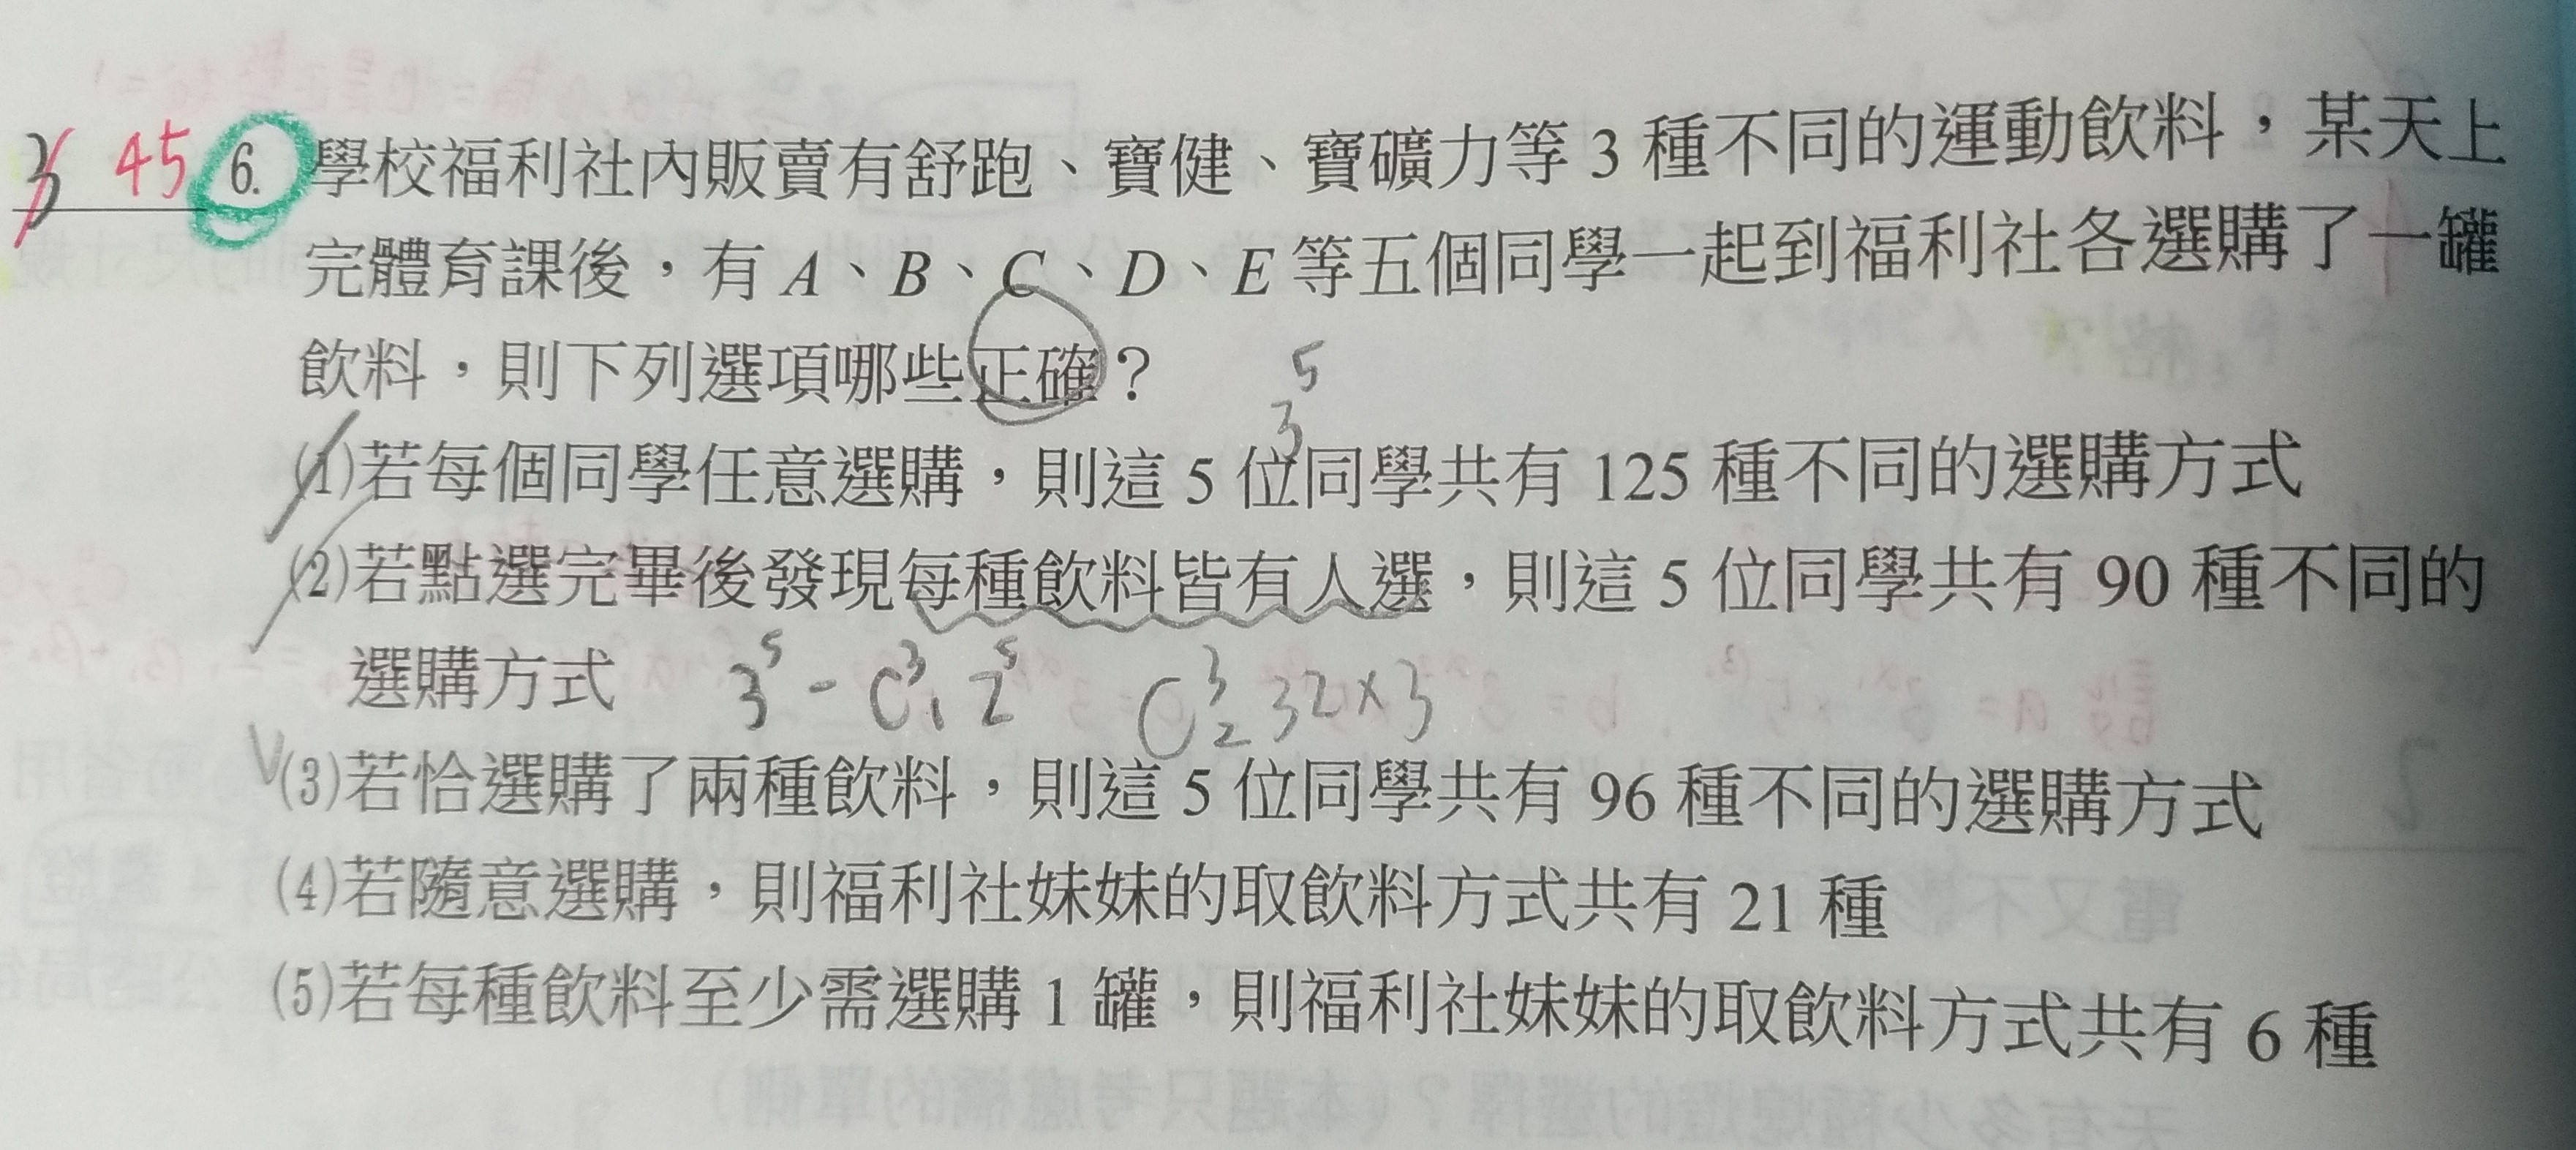 3 45 6. 學校福利社內販賣有舒跑、寶健、寶礦力等 3 種不同的運動飲料，某天上
完體育課後，有 A、B、C、D、E 等五個同學一起到福利社各選購了一罐
飲料，則下列選項哪些正確？
3⁵
(1)若每個同學任意選購，則這 5 位同學共有 125 種不同的選購方式
(2)若點選完畢後發現每種飲料皆有人選，則這 5 位同學共有 90 種不同的
選購方式 3⁵ - C³₁ 2⁵ C³₂ 32 × 3
(3)若恰選購了兩種飲料，則這 5 位同學共有 96 種不同的選購方式
(4)若隨意選購，則福利社妹妹的取飲料方式共有 21 種
(5)若每種飲料至少需選購 1 罐，則福利社妹妹的取飲料方式共有 6 種